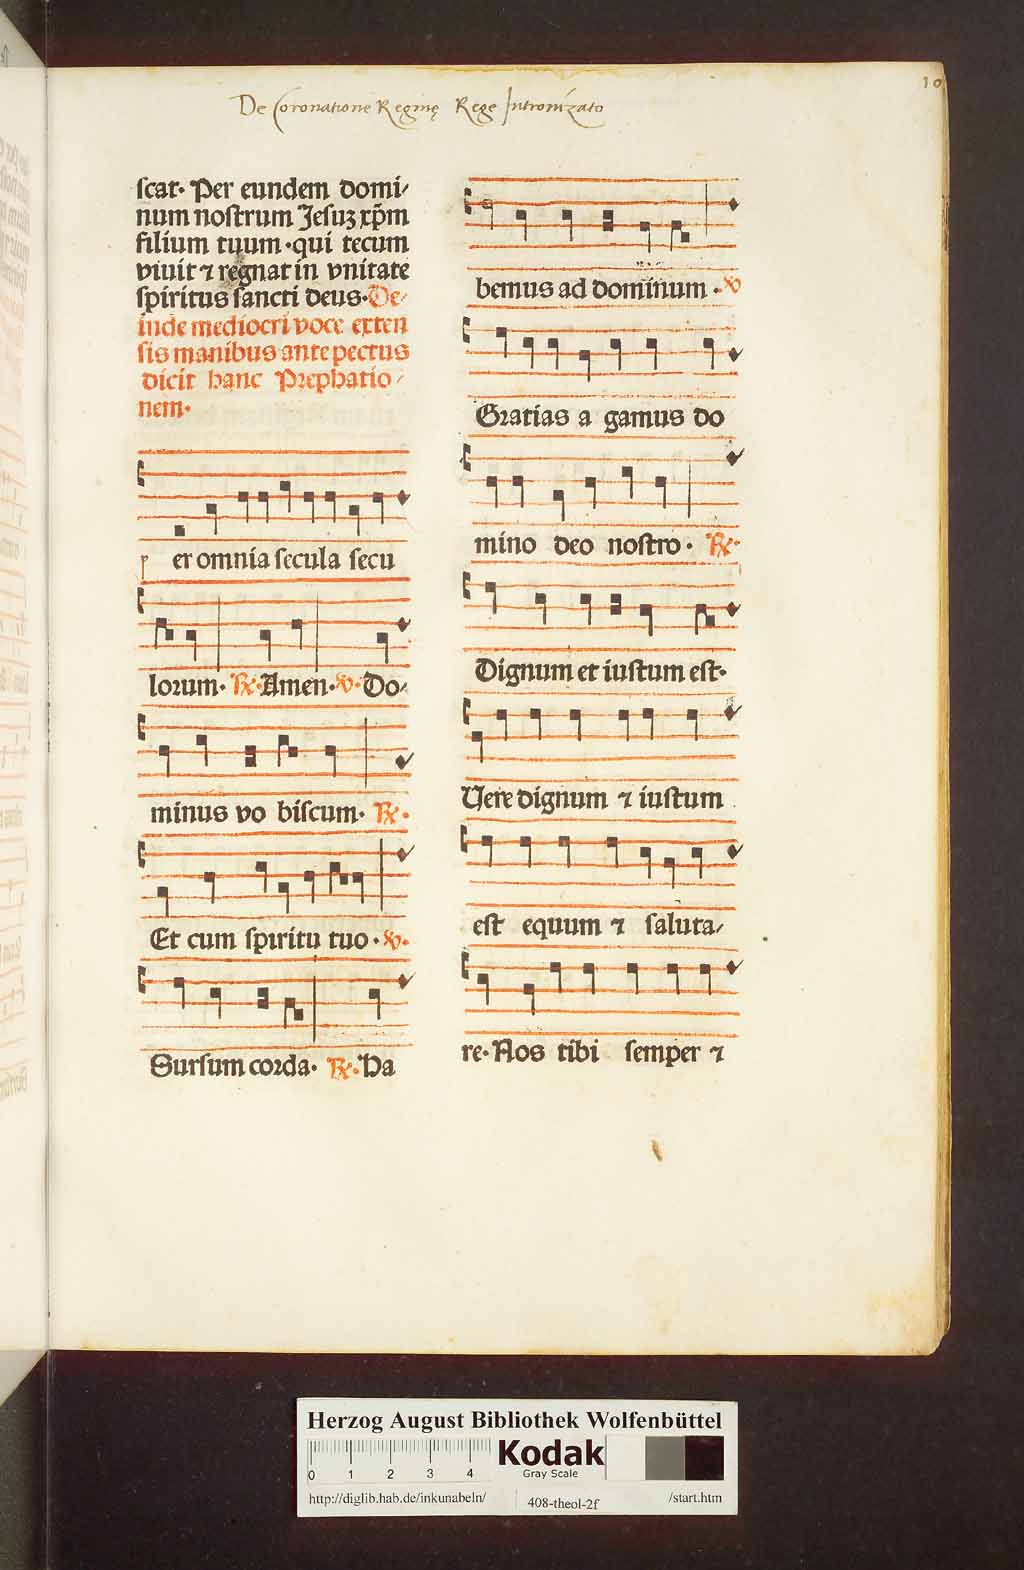 10
De Coronatione Reginę Rege Intronizato
ſcat· Per eundem domi/
num noſtrum Jeſuʒ xp̄m
filium tuum·qui tecum
viuit ⁊ regnat in vnitate
ſpiritus ſancti deus·De/
inde mediocri voce exten
ſis manibus ante pectus
dicit hanc Prephatio/
nem·
p er omnia ſecula ſecu
lorum· ℟·Amen·℣·Do/
minus vo biſcum· ℟·
Et cum ſpiritu tuo·℣·
Surſum corda· ℟·Ha
bemus ad dominum·℣
Gratias a gamus do
mino deo noſtro· ℟·
Dignum et iuſtum eſt·
Uere dignum ⁊ iuſtum
eſt equum ⁊ ſaluta/
re·Nos tibi ſemper ⁊
Herzog August Bibliothek Wolfenbüttel
Kodak
Gray Scale
0 1 2 3 4
http://diglib.hab.de/inkunabeln/ 408-theol-2f /start.htm